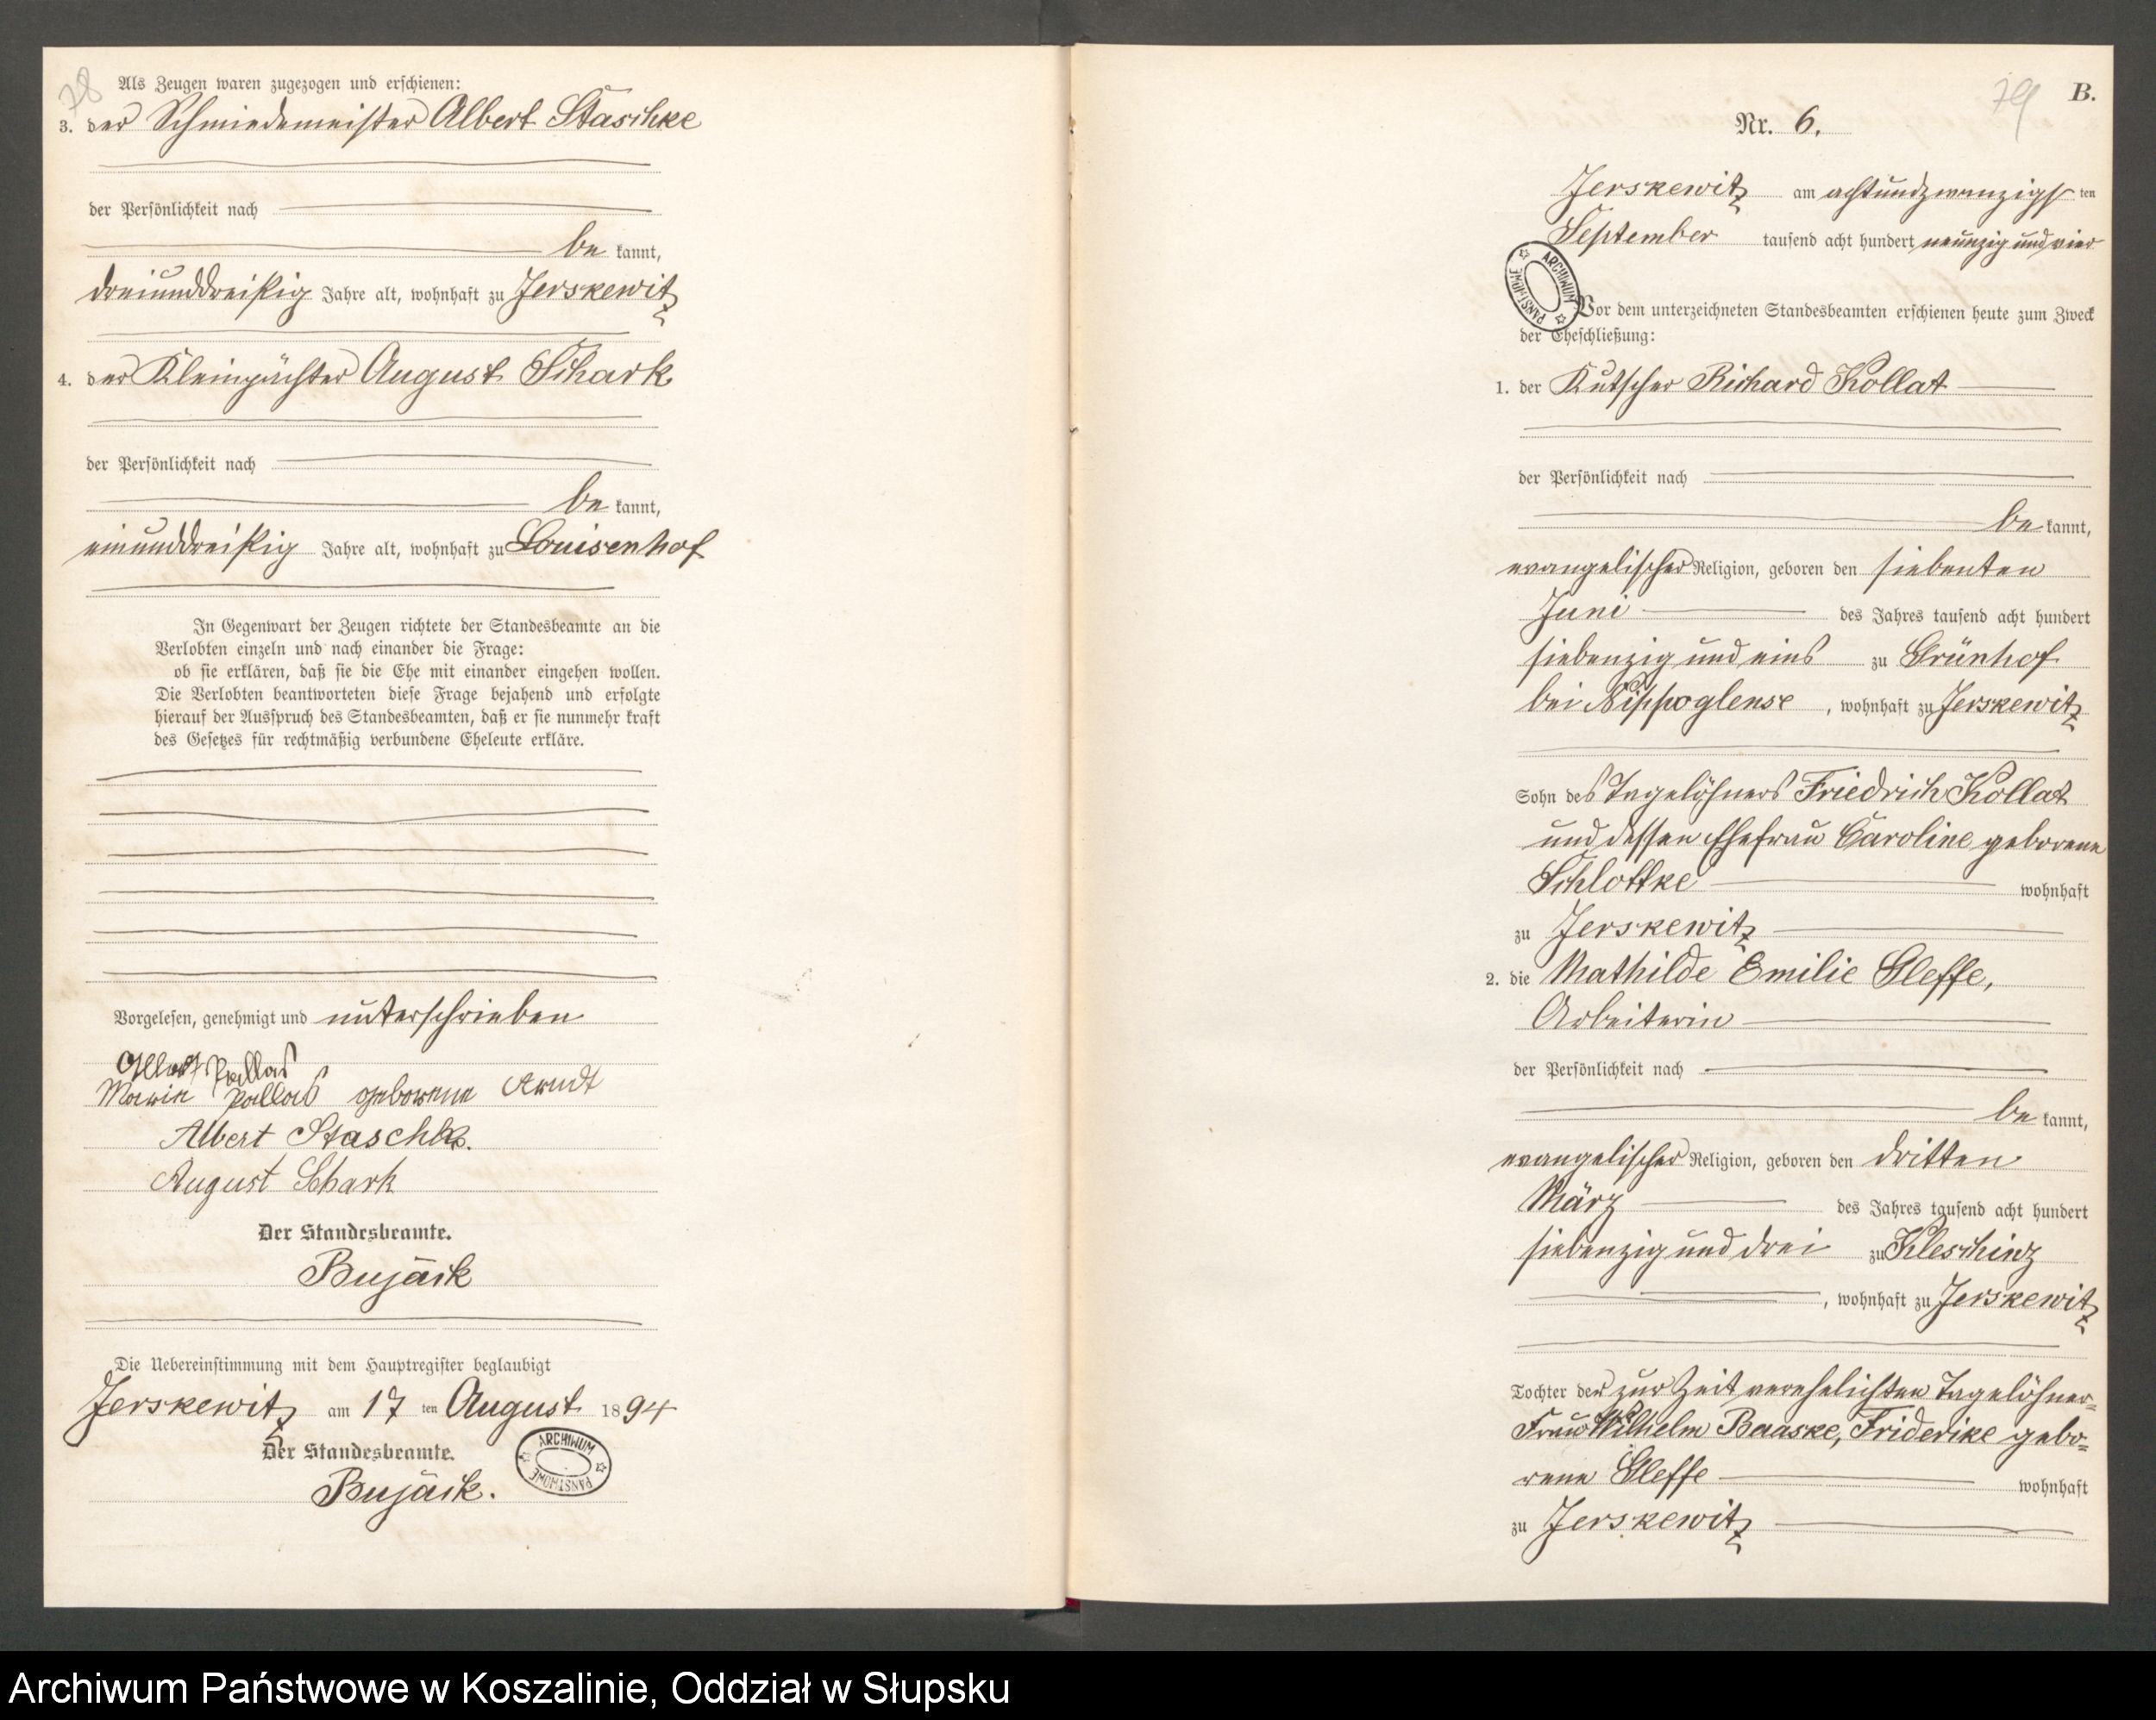 78
Als Zeugen waren zugezogen und erschienen:
3. der Schmiedemeister Albert Staschke
der Persönlichkeit nach
be kannt,
dreiunddreißig Jahre alt, wohnhaft zu Jerskewitz
4. der Kleinpächter August Schark
der Persönlichkeit nach
be kannt,
einunddreißig Jahre alt, wohnhaft zu Louisenhof
In Gegenwart der Zeugen richtete der Standesbeamte an die
Verlobten einzeln und nach einander die Frage:
ob sie erklären, daß sie die Ehe mit einander eingehen wollen.
Die Verlobten beantworteten diese Frage bejahend und erfolgte
hierauf der Ausspruch des Standesbeamten, daß er sie nunmehr kraft
des Gesetzes für rechtmäßig verbundene Eheleute erkläre.
Vorgelesen, genehmigt und unterschrieben
Albert Pallas
Marie Pallas geborene Arndt
Albert Staschke.
August Schark
Der Standesbeamte.
Bujack
Die Uebereinstimmung mit dem Hauptregister beglaubigt
Jerskewitz am 17 ten August 1894
Der Standesbeamte.
Bujack.
ARCHIWUM PAŃSTWOWE
79
B.
Nr. 6.
Jerskewitz am achtundzwanzigs ten
September tausend acht hundert neunzig und vier
ARCHIWUM PAŃSTWOWE
Vor dem unterzeichneten Standesbeamten erschienen heute zum Zweck
der Eheschließung:
1. der Kutscher Richard Kollat
der Persönlichkeit nach
be kannt,
evangelischer Religion, geboren den siebenten
Juni des Jahres tausend acht hundert
siebenzig und eins zu Grünhof
bei Nippoglense, wohnhaft zu Jerskewitz
Sohn des Tagelöhners Friedrich Kollat
und dessen Ehefrau Caroline geborene
Schlottke wohnhaft
zu Jerskewitz
2. die Mathilde Emilie Gleffe,
Arbeiterin
der Persönlichkeit nach
be kannt,
evangelischer Religion, geboren den dritten
März des Jahres tausend acht hundert
siebenzig und drei zu Kleschinz
, wohnhaft zu Jerskewitz
Tochter der zur Zeit verehelichten Tagelöhner-
Frau Wilhelm Baaske, Friderike gebo-
rene Gleffe wohnhaft
zu Jerskewitz
Archiwum Państwowe w Koszalinie, Oddział w Słupsku